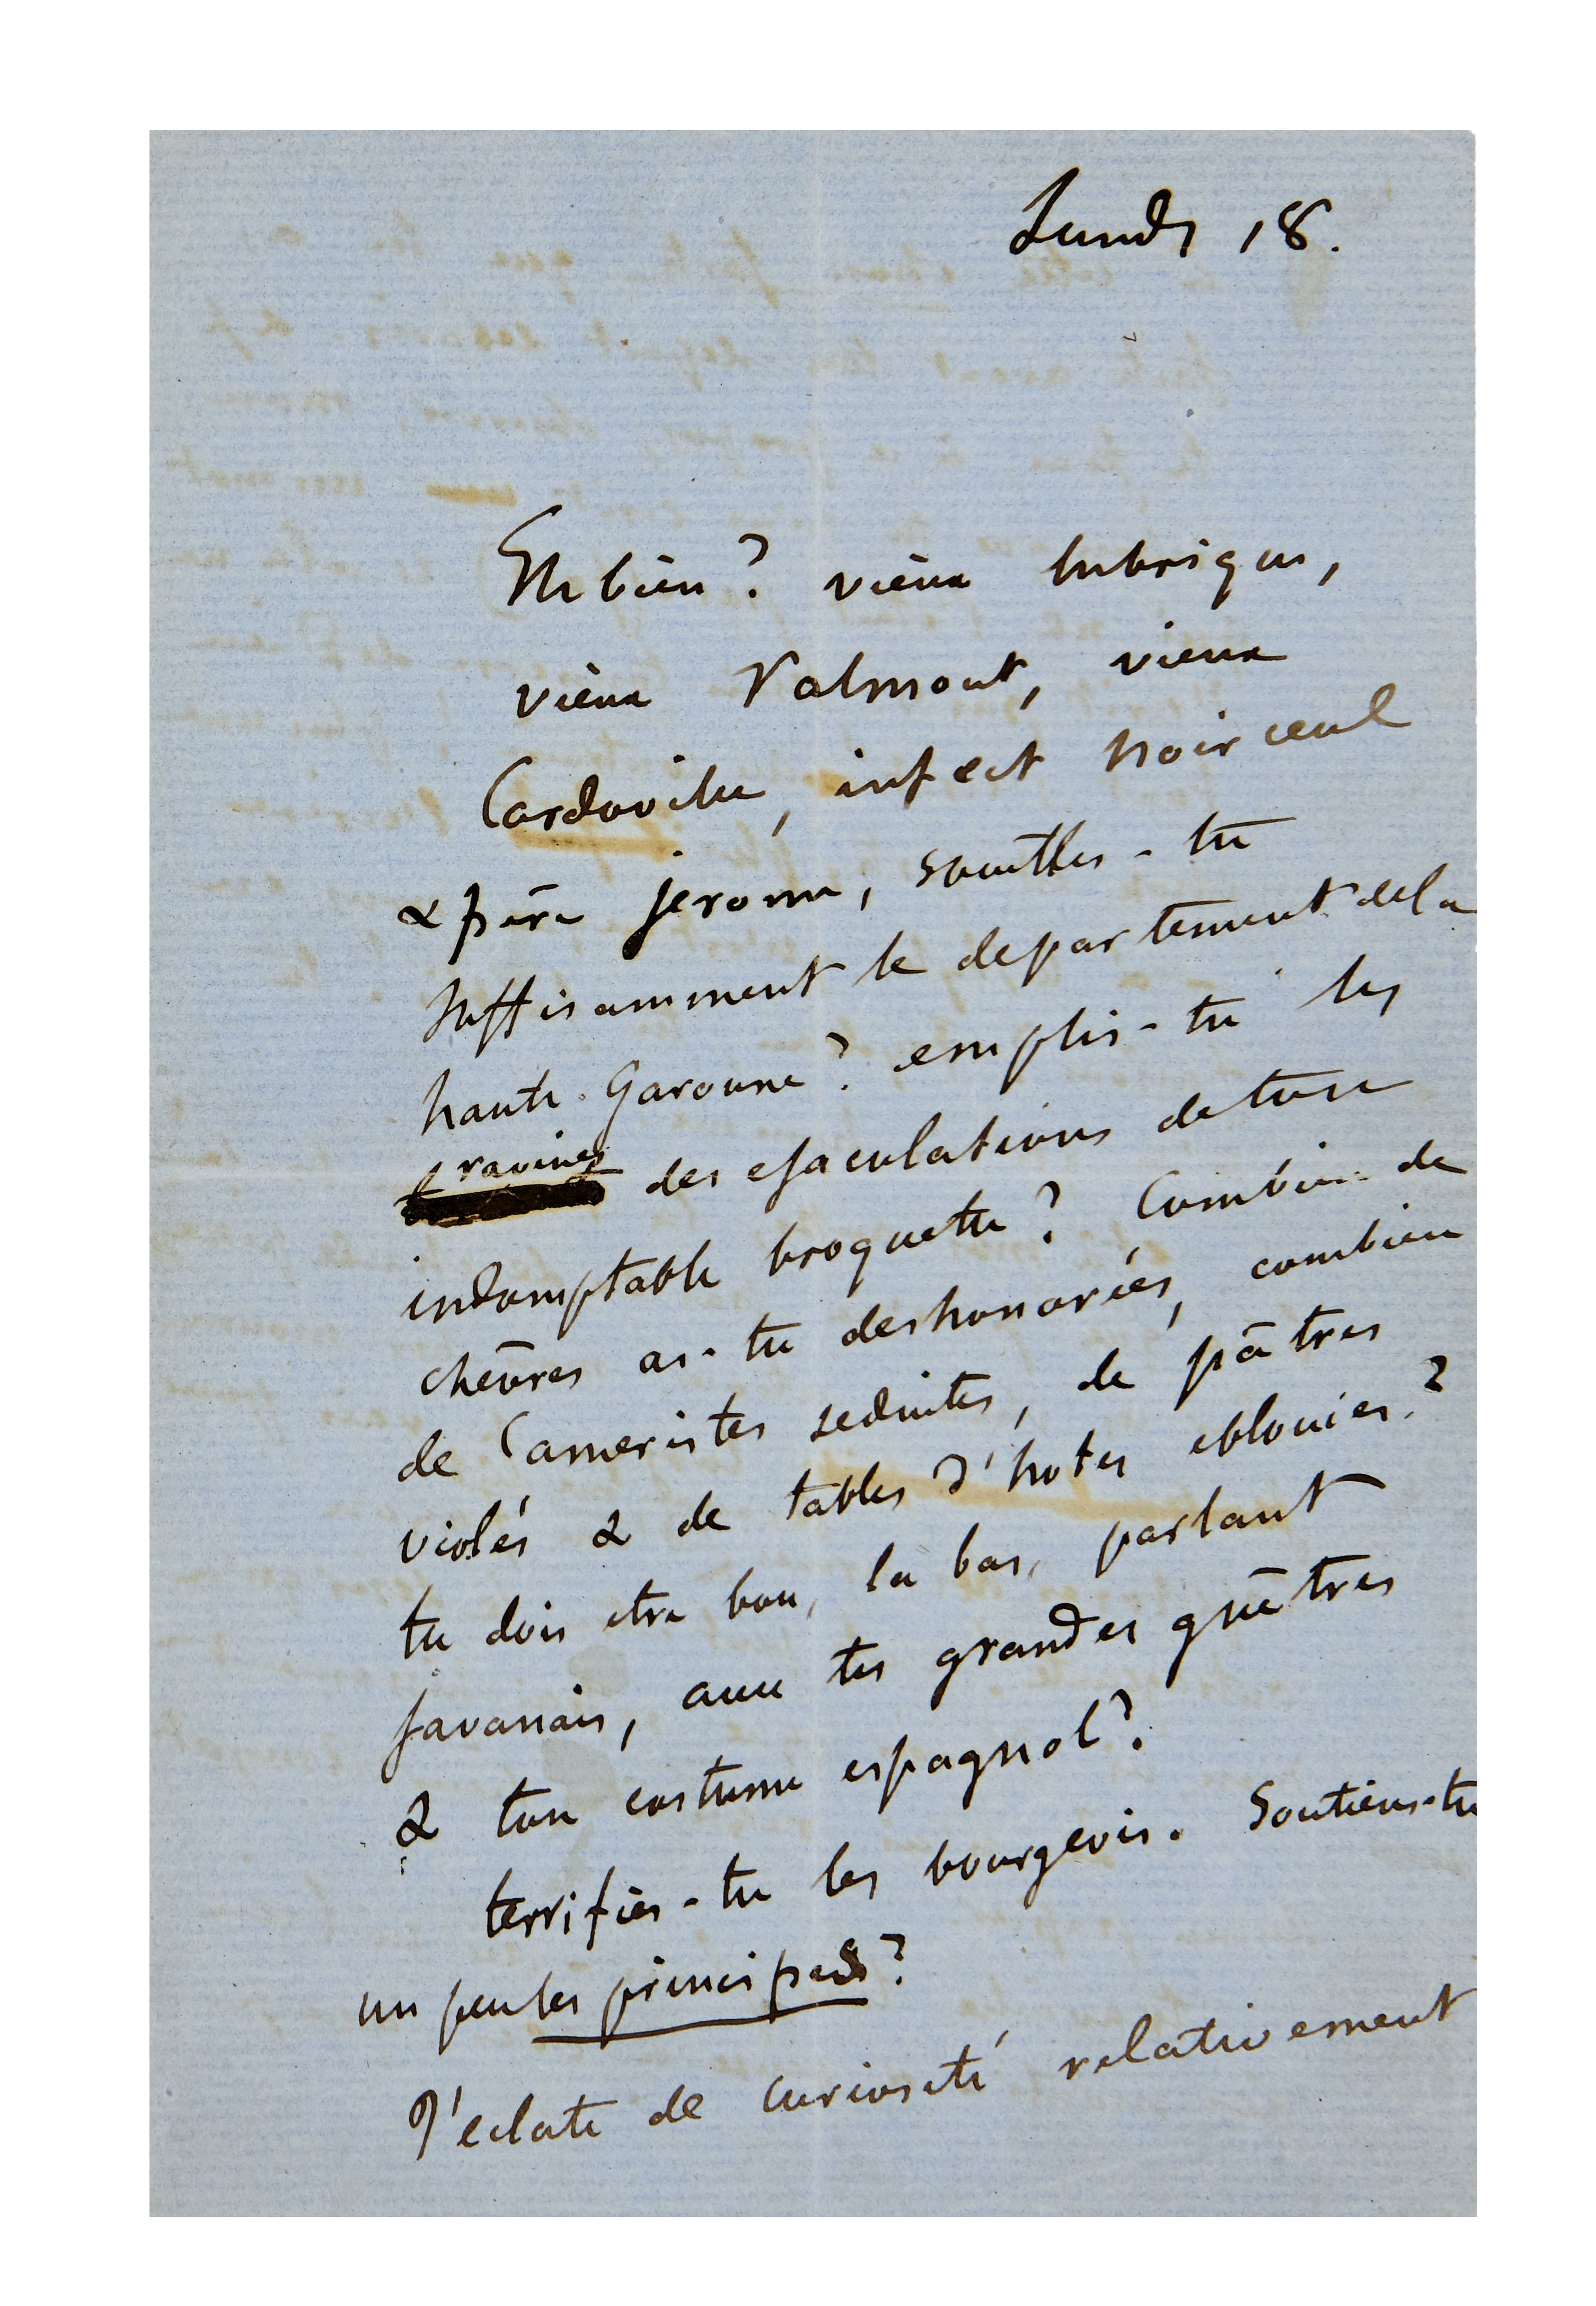 Lundi 18.
Eh bien ? vieux lubrique,
vieux Valmont, vieux
Cardoville, infect noirceuil
& père jerome, souilles-tu
suffisamment le departement de la
haute Garonne ? emplis-tu les
ravines des ejaculations de ton
indomptable broquette ? Combien de
chèvres as-tu deshonorées, combien
de Cameristes seduites, de pâtres
violés & de tables d'hotes eblouies ?
tu dois etre bon, la bas, parlant
javanais, avec tes grandes guêtres
& ton costume espagnol ?
terrifies-tu les bourgeois. Soutiens-tu
un peu les principes ?
J'eclate de curiosité relativement